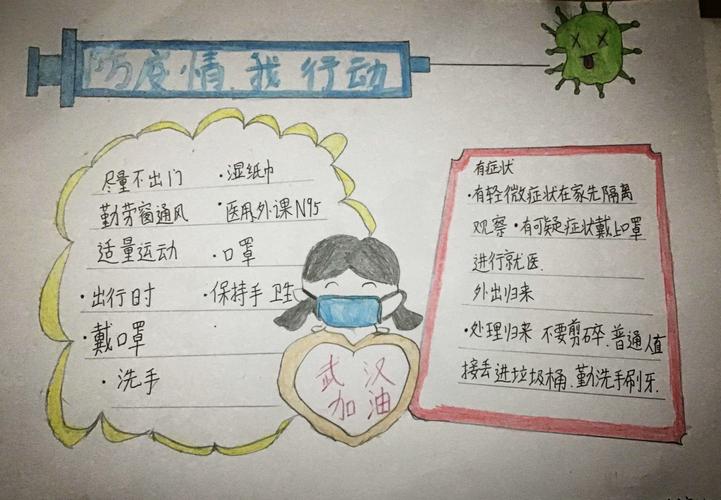 防疫情 我行动
尽量不出门 ·湿纸巾
勤劳窗通风 ·医用外课N95
适量运动 ·口罩
·出行时 ·保持手卫生
·戴口罩
·洗手
武汉
加油
有症状
·有轻微症状在家先隔离
观察·有可疑症状戴上口罩
进行就医.
外出归来
·处理归来 不要剪碎.普通人直
接丢进垃圾桶.勤洗手刷牙.